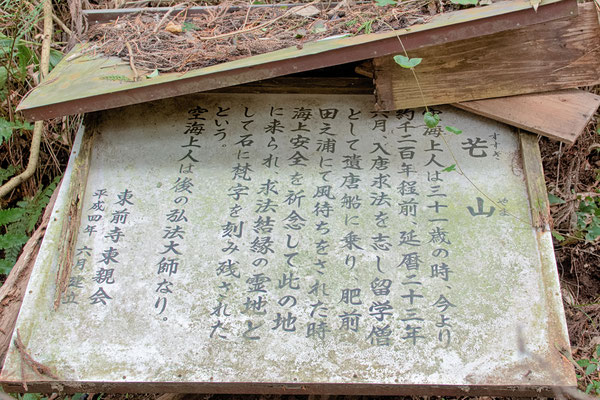 芒山
すすき やま
空海上人は三十一歳の時 今より
約千二百年程前、延暦二十三年
六月、入唐求法を志し留学僧
として遣唐船に乗り、肥前
田之浦にて風待ちをされた時
海上安全を祈念して此の地
に来られ、求法結縁の霊地と
して石に梵字を刻み残された
という。
空海上人は後の弘法大師なり。
東前寺東親会
平成四年 六月建立